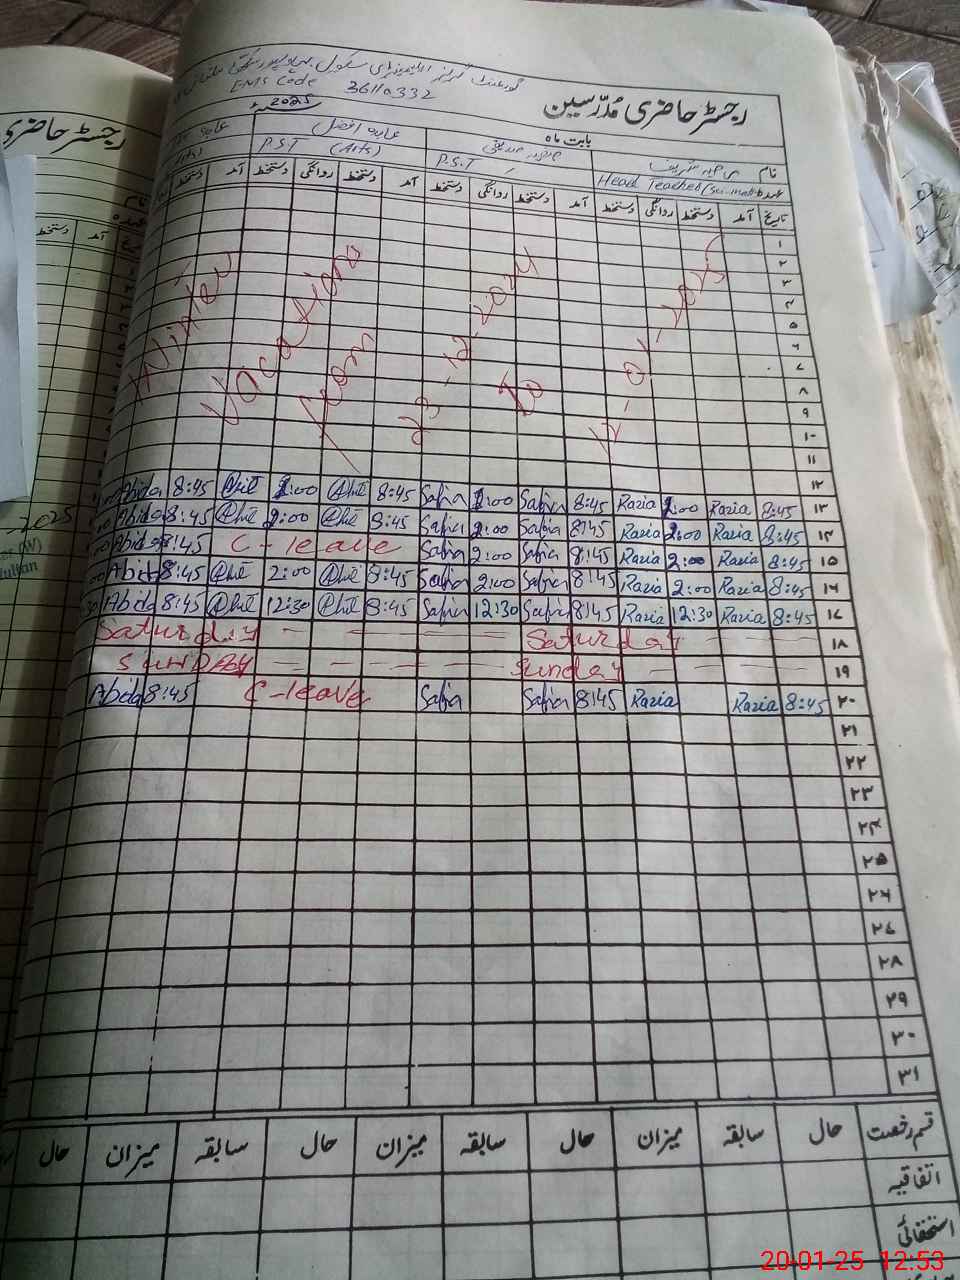 رجسٹر حاضری مدرسین
گورنمنٹ گرلز ایلیمنٹری سکول
EMIS Code 36110332
بابت ماہ
2025
نام
عابدہ افضل
عہدہ Head Teacher (Sci-Math)
P.S.T
P.S.T (Arts)
تاریخ آمد دستخط روانگی دستخط آمد دستخط روانگی دستخط آمد دستخط روانگی دستخط آمد دستخط
۱
۲
۳
۴
۵
۶
۷
۸
۹
۱۰
۱۱
Winter Vacations from 23-12-2024 To 12-01-2025
۱۲
Abida 8:45 2:00 8:45 Safia 2:00 Safia 8:45 Razia 2:00 Razia 8:45 ۱۳
Abida 8:45 2:00 8:45 Safia 2:00 Safia 8:45 Razia 2:00 Razia 8:45 ۱۴
Abida 8:45 C-leave Safia 2:00 Safia 8:45 Razia 2:00 Razia 8:45 ۱۵
Abida 8:45 2:00 8:45 Safia 2:00 Safia 8:45 Razia 2:00 Razia 8:45 ۱۶
Abida 8:45 12:30 8:45 Safia 12:30 Safia 8:45 Razia 12:30 Razia 8:45 ۱۷
Saturday Saturday ۱۸
SUNDAY Sunday ۱۹
Abida 8:45 C-leave Safia Safia 8:45 Razia Razia 8:45 ۲۰
۲۱
۲۲
۲۳
۲۴
۲۵
۲۶
۲۷
۲۸
۲۹
۳۰
۳۱
قسم رخصت حال سابقہ میزان حال سابقہ میزان حال سابقہ میزان حال
اتفاقیہ
استحقاقی
رجسٹر حاضری
نام
عہدہ
آمد دستخط
2025
(W)
Multan
20-01-25 12:53